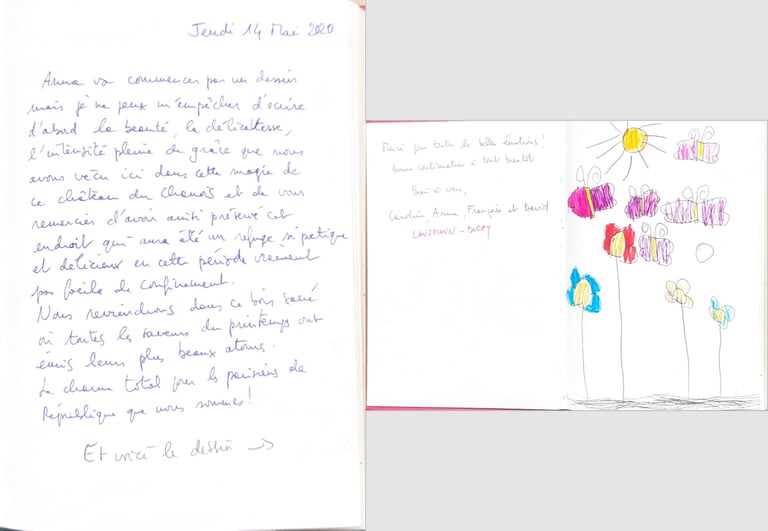 Jeudi 14 Mai 2020
Anna va commencer par un dessin
mais je ne peux m'empêcher d'écrire
d'abord la beauté, la délicatesse,
l'intensité pleine de grâce que nous
avons vécu ici dans cette magie de
ce château du Chanois et de vous
remercier d'avoir aussi préservé cet
endroit qui aura été un refuge si poétique
et délicieux en cette période vraiment
pas facile de confinement.
Nous reviendrons dans ce bois sacré
où toutes les saveurs du printemps ont
émis leurs plus beaux atouts.
Le charme total pour les parisiens de
République que nous sommes!
Et voici le dessin →
Merci pour toutes les belles émotions!
Bonne continuation à tout bientôt
Bien à vous,
Anna, François et David